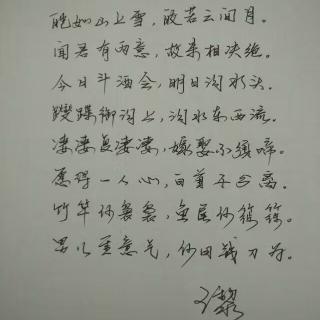 皑如山上雪，皎若云间月。
闻君有两意，故来相决绝。
今日斗酒会，明日沟水头。
躞蹀御沟上，沟水东西流。
凄凄复凄凄，嫁娶不须啼。
愿得一人心，白首不相离。
竹竿何袅袅，鱼尾何簁簁。
男儿重意气，何用钱刀为。